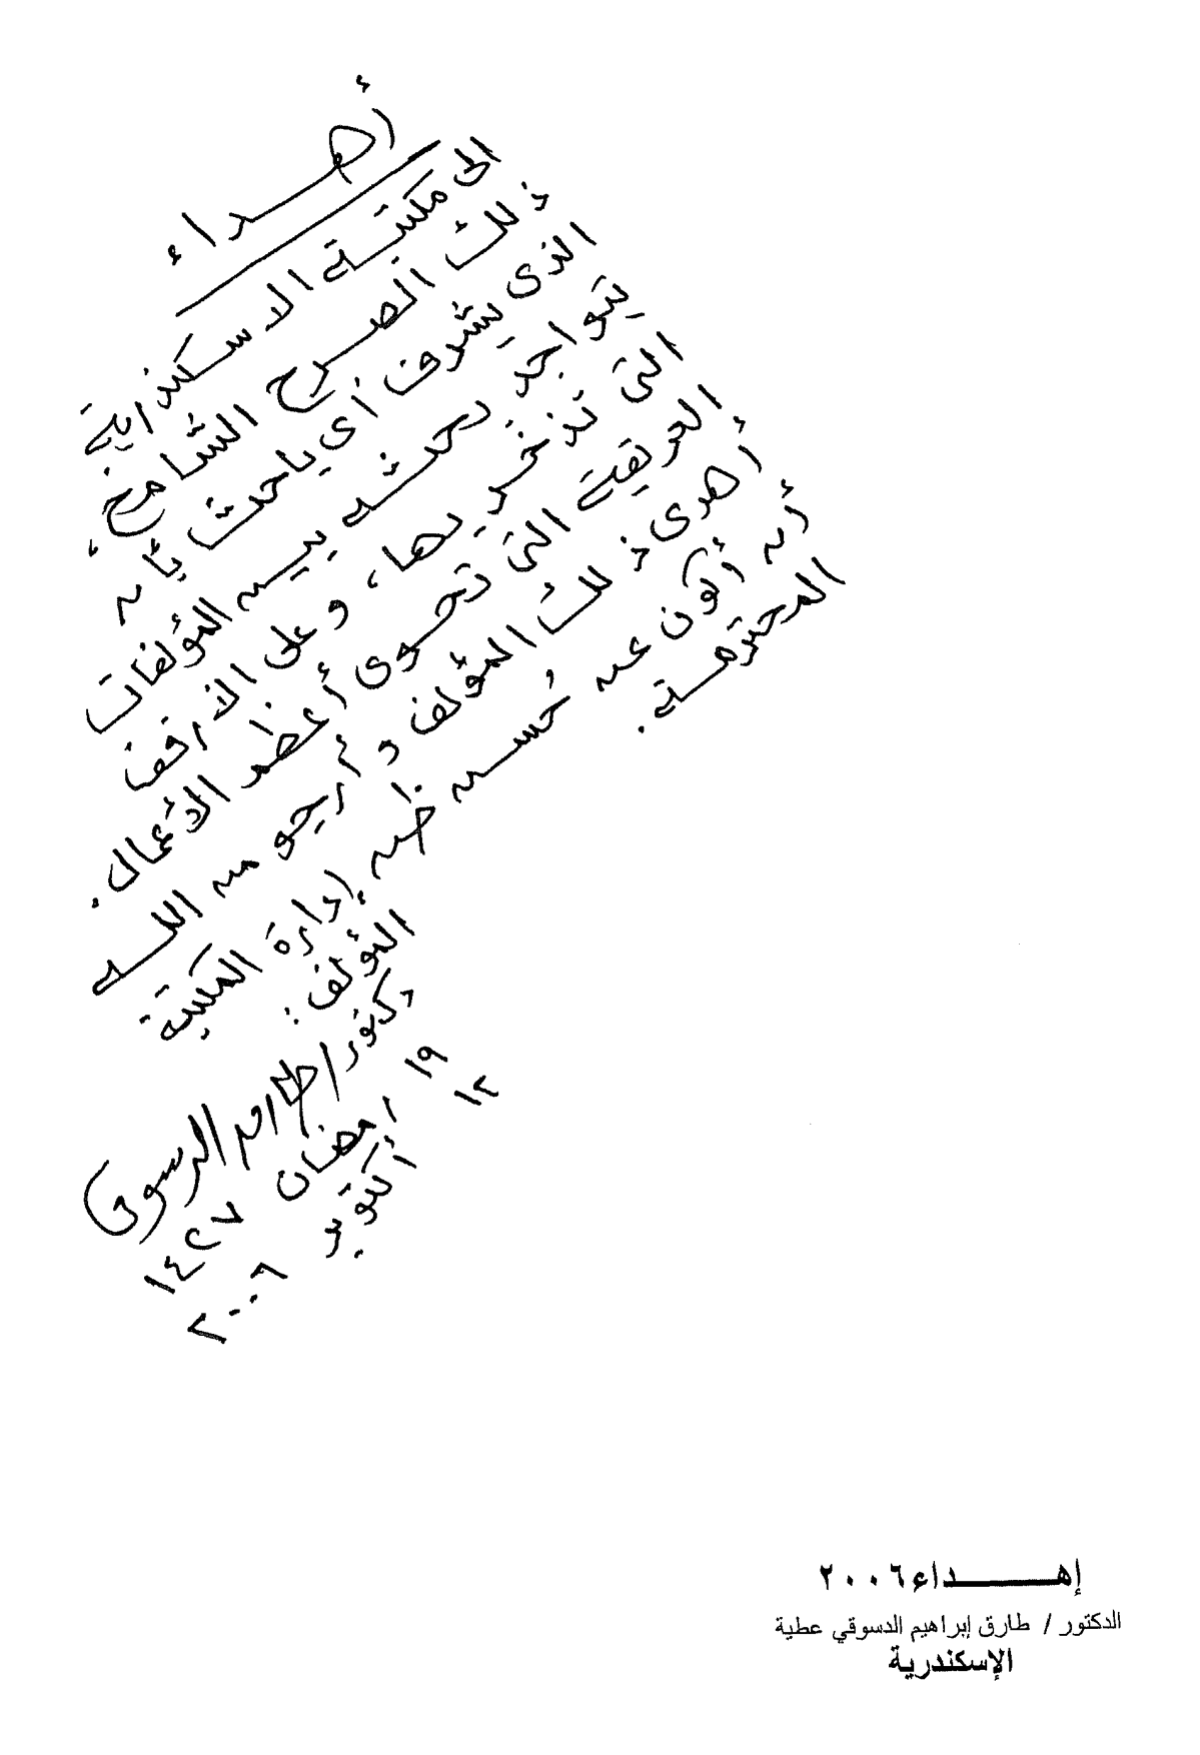 أهداء
الى مكتبة الاسكندرية
ذلك الصرح الشامخ،
الذى يشرف أى باحث بأن
يتواجد بحثه بين المؤلفات
التى تذخر بها، وعلى الأرفف
العريقة التى تحوى أعظم الأعمال.
أهدى ذلك المؤلف وأرجو من الله
أن أكون عند حُسن ظن إدارة المكتبة
المحترمة.
المؤلف:
دكتور/ طارق الدسوقى
١٩ رمضان ١٤٢٧
١٢ أكتوبر ٢٠٠٦
إهــــــداء ٢٠٠٦
الدكتور / طارق إبراهيم الدسوقي عطية
الإسكندرية